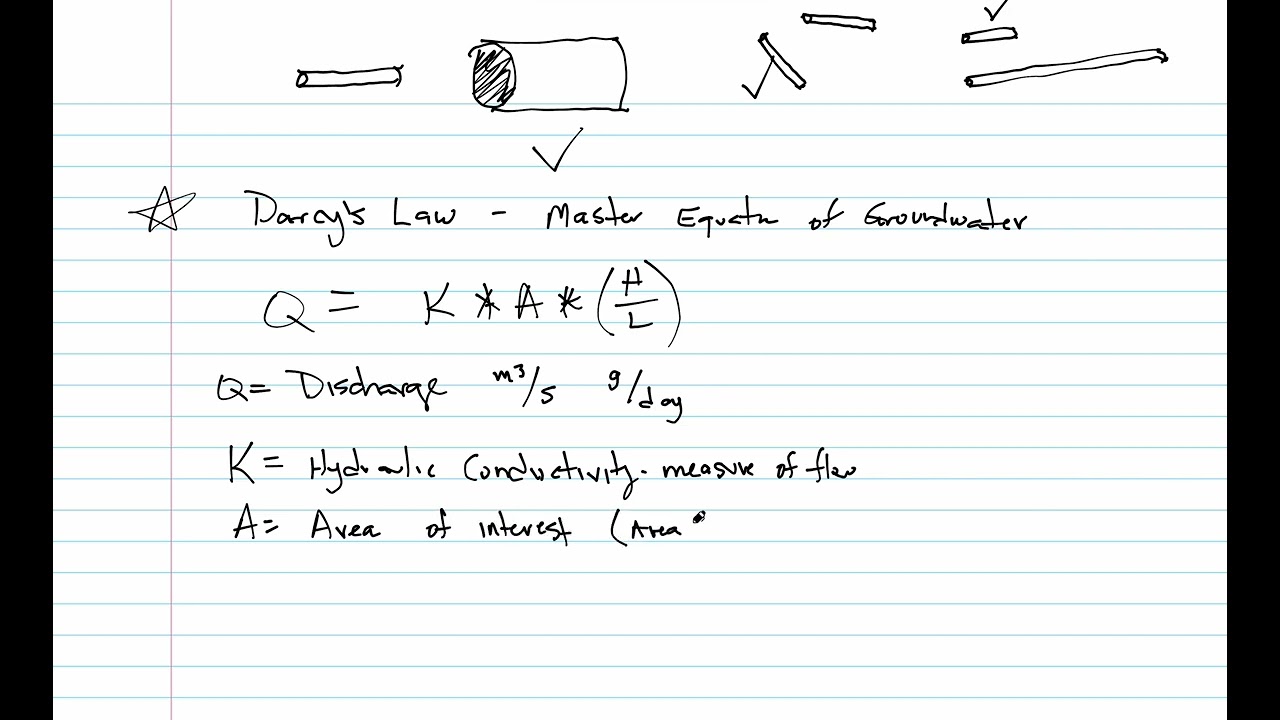 Darcy's Law - Master Equatn of Groundwater
Q = K * A * (H/L)
Q= Discharge m³/s g/day
K= Hydraulic Conductivity - measure of flow
A= Area of interest (Area